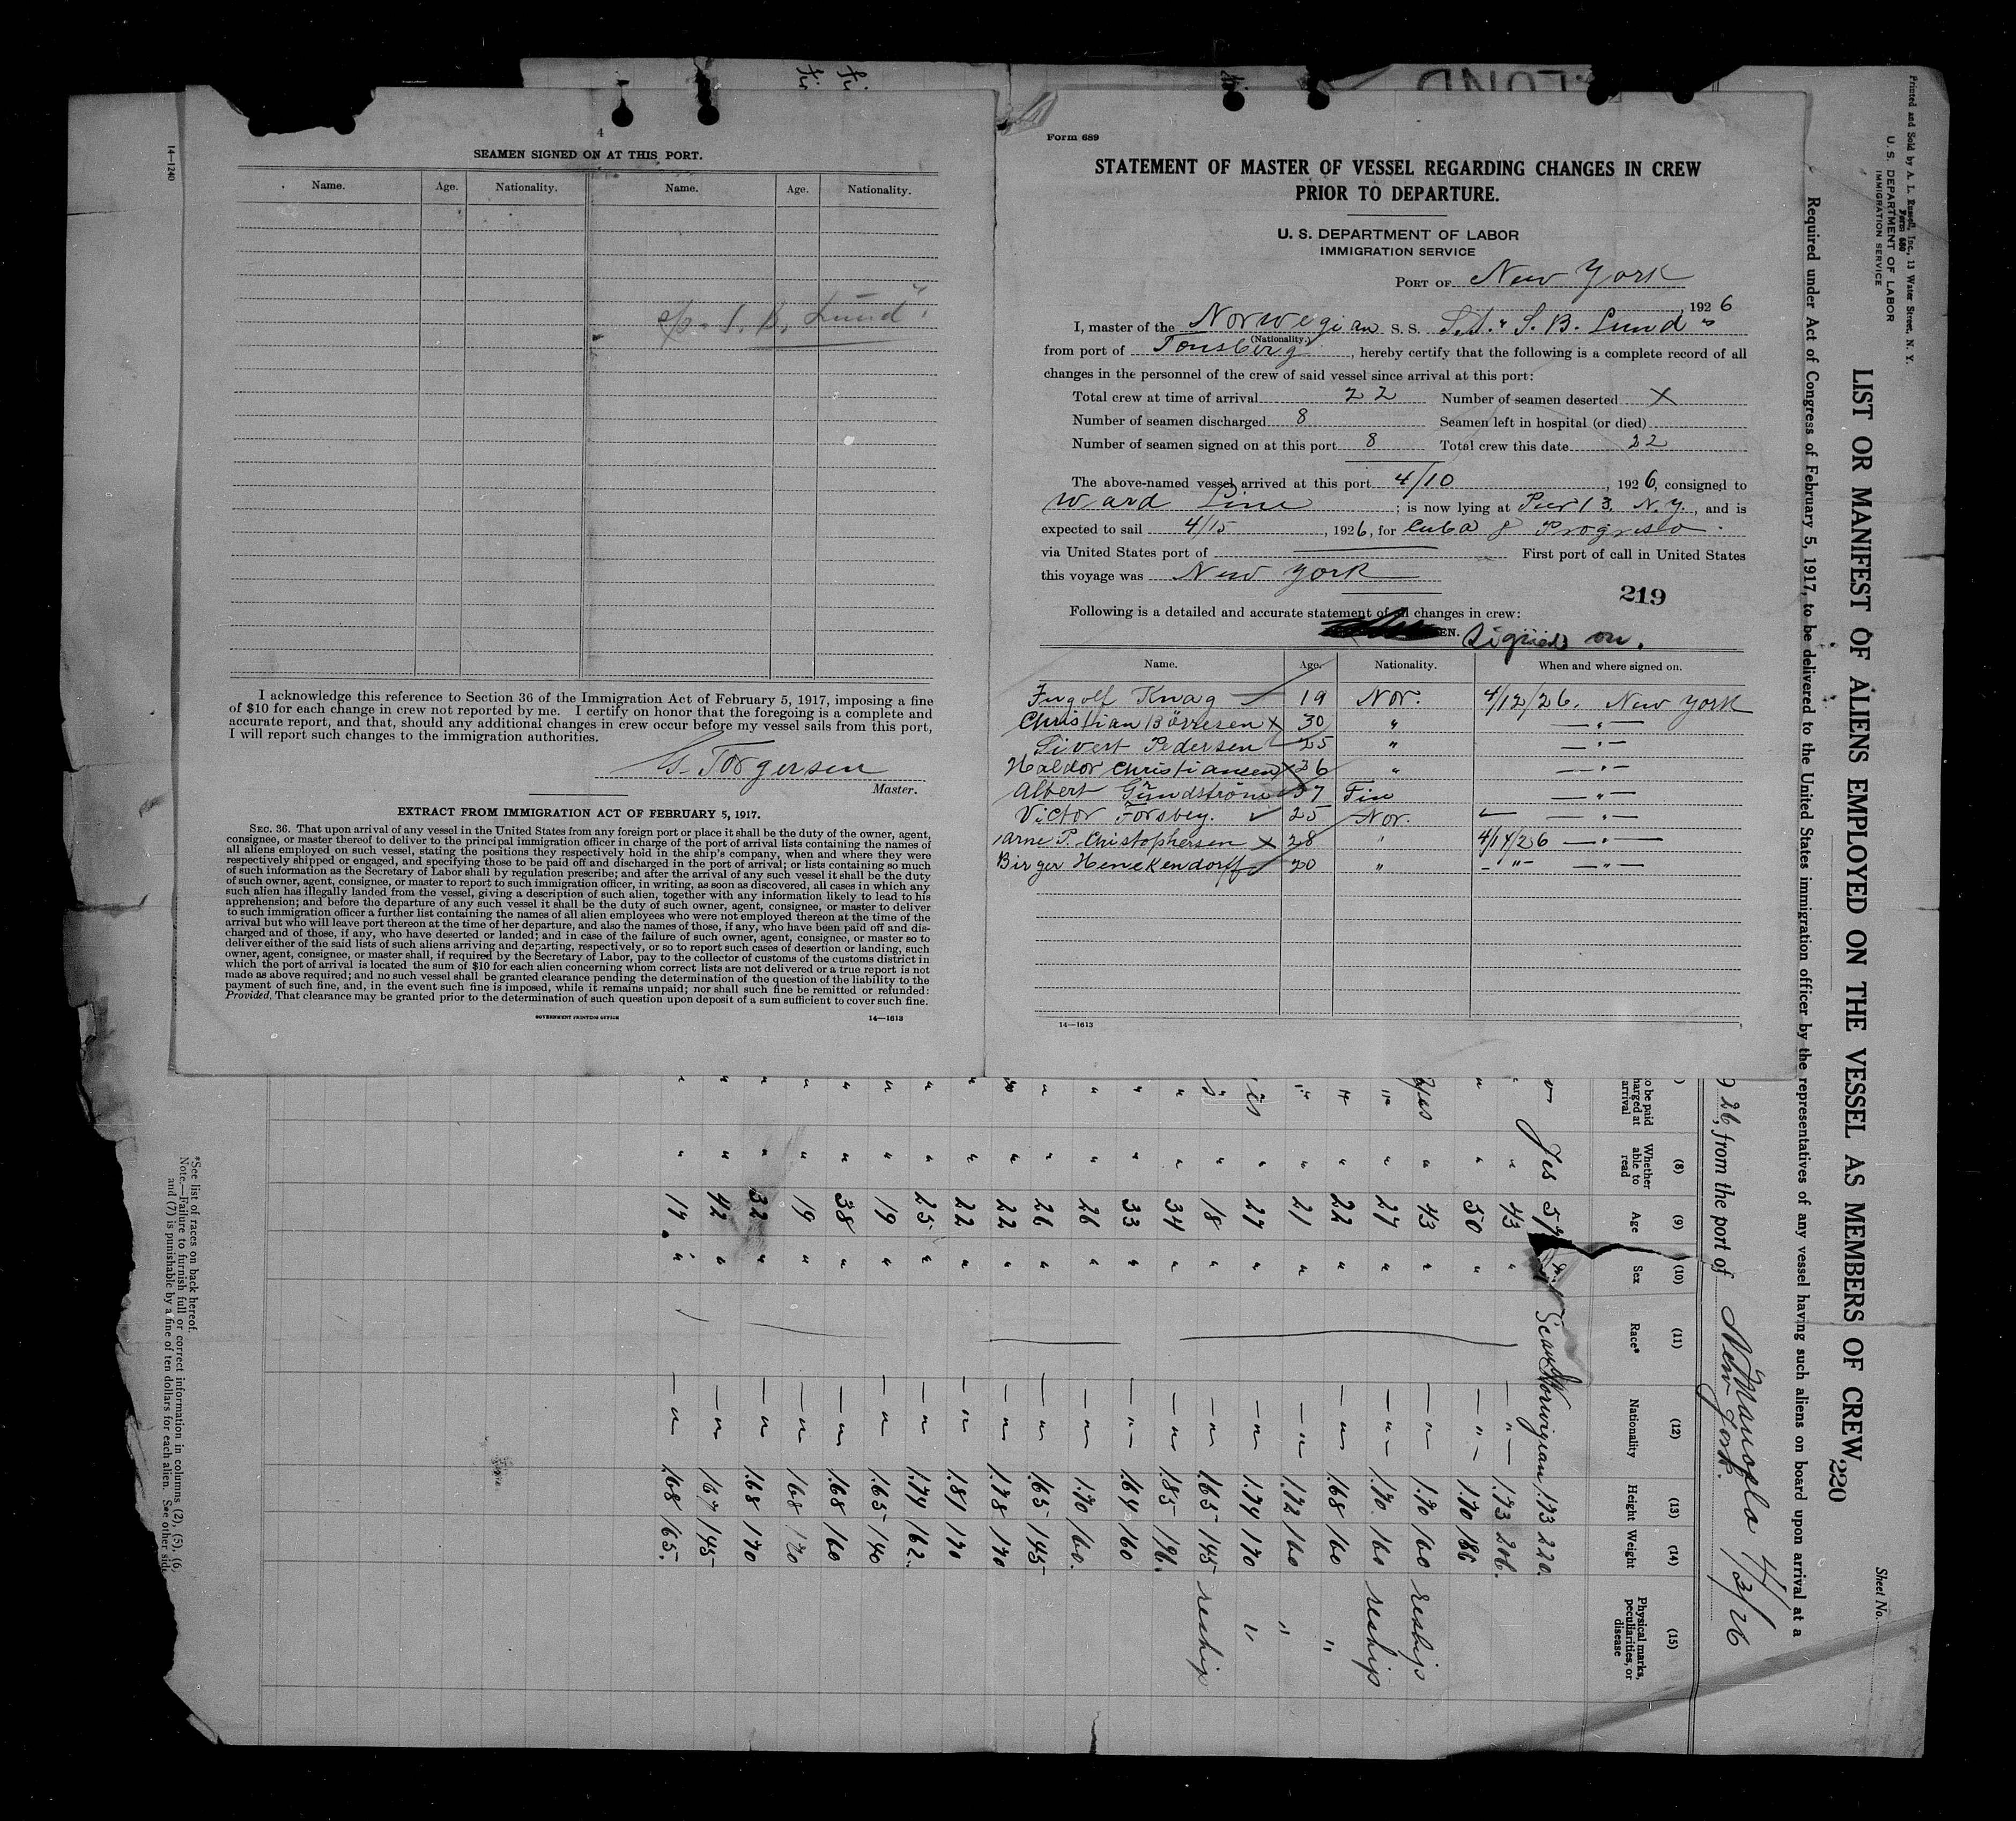 4
SEAMEN SIGNED ON AT THIS PORT.
Name. Age. Nationality. Name. Age. Nationality.
S. B. Lund"
I acknowledge this reference to Section 36 of the Immigration Act of February 5, 1917, imposing a fine
of $10 for each change in crew not reported by me. I certify on honor that the foregoing is a complete and
accurate report, and that, should any additional changes in crew occur before my vessel sails from this port,
I will report such changes to the immigration authorities.
Torgersen
Master.
EXTRACT FROM IMMIGRATION ACT OF FEBRUARY 5, 1917.
SEC. 36. That upon arrival of any vessel in the United States from any foreign port or place it shall be the duty of the owner, agent,
consignee, or master thereof to deliver to the principal immigration officer in charge of the port of arrival lists containing the names of
all aliens employed on such vessel, stating the positions they respectively hold in the ship's company, when and where they were
respectively shipped or engaged, and specifying those to be paid off and discharged in the port of arrival; or lists containing so much
of such information as the Secretary of Labor shall by regulation prescribe; and after the arrival of any such vessel it shall be the duty
of such owner, agent, consignee, or master to report to such immigration officer, in writing, as soon as discovered, all cases in which any
such alien has illegally landed from the vessel, giving a description of such alien, together with any information likely to lead to his
apprehension; and before the departure of any such vessel it shall be the duty of such owner, agent, consignee, or master to deliver
to such immigration officer a further list containing the names of all alien employees who were not employed thereon at the time of the
arrival but who will leave port thereon at the time of her departure, and also the names of those, if any, who have been paid off and dis-
charged and of those, if any, who have deserted or landed; and in case of the failure of such owner, agent, consignee, or master so to
deliver either of the said lists of such aliens arriving and departing, respectively, or so to report such cases of desertion or landing, such
owner, agent, consignee, or master shall, if required by the Secretary of Labor, pay to the collector of customs of the customs district in
which the port of arrival is located the sum of $10 for each alien concerning whom correct lists are not delivered or a true report is not
made as above required; and no such vessel shall be granted clearance pending the determination of the question of the liability to the
payment of such fine, and, in the event such fine is imposed, while it remains unpaid; nor shall such fine be remitted or refunded:
Provided, That clearance may be granted prior to the determination of such question upon deposit of a sum sufficient to cover such fine.
GOVERNMENT PRINTING OFFICE 14—1613
14—1240
Form 689
STATEMENT OF MASTER OF VESSEL REGARDING CHANGES IN CREW
PRIOR TO DEPARTURE.
U. S. DEPARTMENT OF LABOR
IMMIGRATION SERVICE
PORT OF New York
, 192 6
I, master of the Norwegian S. S. S.S. "S. B. Lund"
(Nationality.)
from port of Tonsberg, hereby certify that the following is a complete record of all
changes in the personnel of the crew of said vessel since arrival at this port:
Total crew at time of arrival 22 Number of seamen deserted X
Number of seamen discharged 8 Seamen left in hospital (or died)
Number of seamen signed on at this port 8 Total crew this date 22
The above-named vessel arrived at this port 4/10, 192 6, consigned to
Ward Line; is now lying at Pier 13, N.Y., and is
expected to sail 4/15, 192 6, for Cuba & Progreso.
via United States port of — First port of call in United States
this voyage was New York
219
Following is a detailed and accurate statement of all changes in crew:
EN. Signed on.
Name. Age. Nationality. When and where signed on.
Ingolf Knag 19 Nor. 4/12/26. New York
Christian Börresen x 30 " — " —
Sivert Pedersen 25 " — " —
Haldor Christiansen x 36 " — " —
Albert Gundström 37 Fin — " —
Victor Forsbey. ✓ 25 Nor. — " —
Arne P. Christophersen x 28 " 4/14/26 — " —
Birger Henckendorff 20 " — " — — " —
14—1613
Printed and Sold by A. L. Russell, Inc., 13 Water Street, N. Y.
Form 680
U. S. DEPARTMENT OF LABOR
IMMIGRATION SERVICE
Sheet No.
LIST OR MANIFEST OF ALIENS EMPLOYED ON THE VESSEL AS MEMBERS OF CREW 220
Required under Act of Congress of February 5, 1917, to be delivered to the United States immigration officer by the representatives of any vessel having such aliens on board upon arrival at a
26, from the port of Manopla 4/3/26
New York.
(8) (9) (10) (11) (12) (13) (14) (15)
to be paid
harged at
arrival
Whether
able to
read
Age Sex Race* Nationality Height Weight Physical marks,
peculiarities, or
disease
Yes 57 Scan Norwegian 1.73 220.
" 43 " — " — 1.73 206.
" " 50 " — " — 1.70 186
Yes " 43 " — " — 1.70 160 reship
" " 27 " — " — 1.70. 160 reship
" " 22 " — " — 1.68 160 "
" " 21 " — " — 1.72 160 "
" 27 " — " — 1.74 170 "
" 18 " — " — 1.65 145 reship
" " 34 " — " — 1.85 196.
" " 33 " — " — 1.64 160
" " 26 " — " — 1.70 160.
" " 26 " — " — 1.65 145
" 22 " — " — 1.78 170
" " 22 " — " — 1.81 170
" " 25 " — " — 1.74 162.
" " 19 " — " — 1.65 140
" " 38 " — " — 1.68 160
" " 19 " — " — 1.68 170
" " 32 " — " — 1.68 170
" " 42 " — " — 1.67 145
" " 17 " — " — 1.68 165.
*See list of races on back hereof.
Note.—Failure to furnish full or correct information in columns (2), (5), (6,
and (7) is punishable by a fine of ten dollars for each alien. See other side